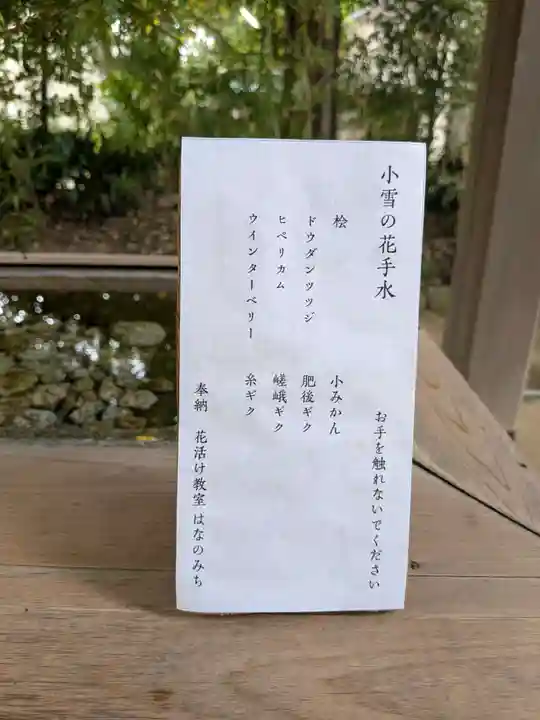 小雪の花手水
お手を触れないでください
桧
小みかん
ドウダンツツジ
肥後ギク
ヒペリカム
嵯峨ギク
ウインターベリー
糸ギク
奉納　花活け教室 はなのみち